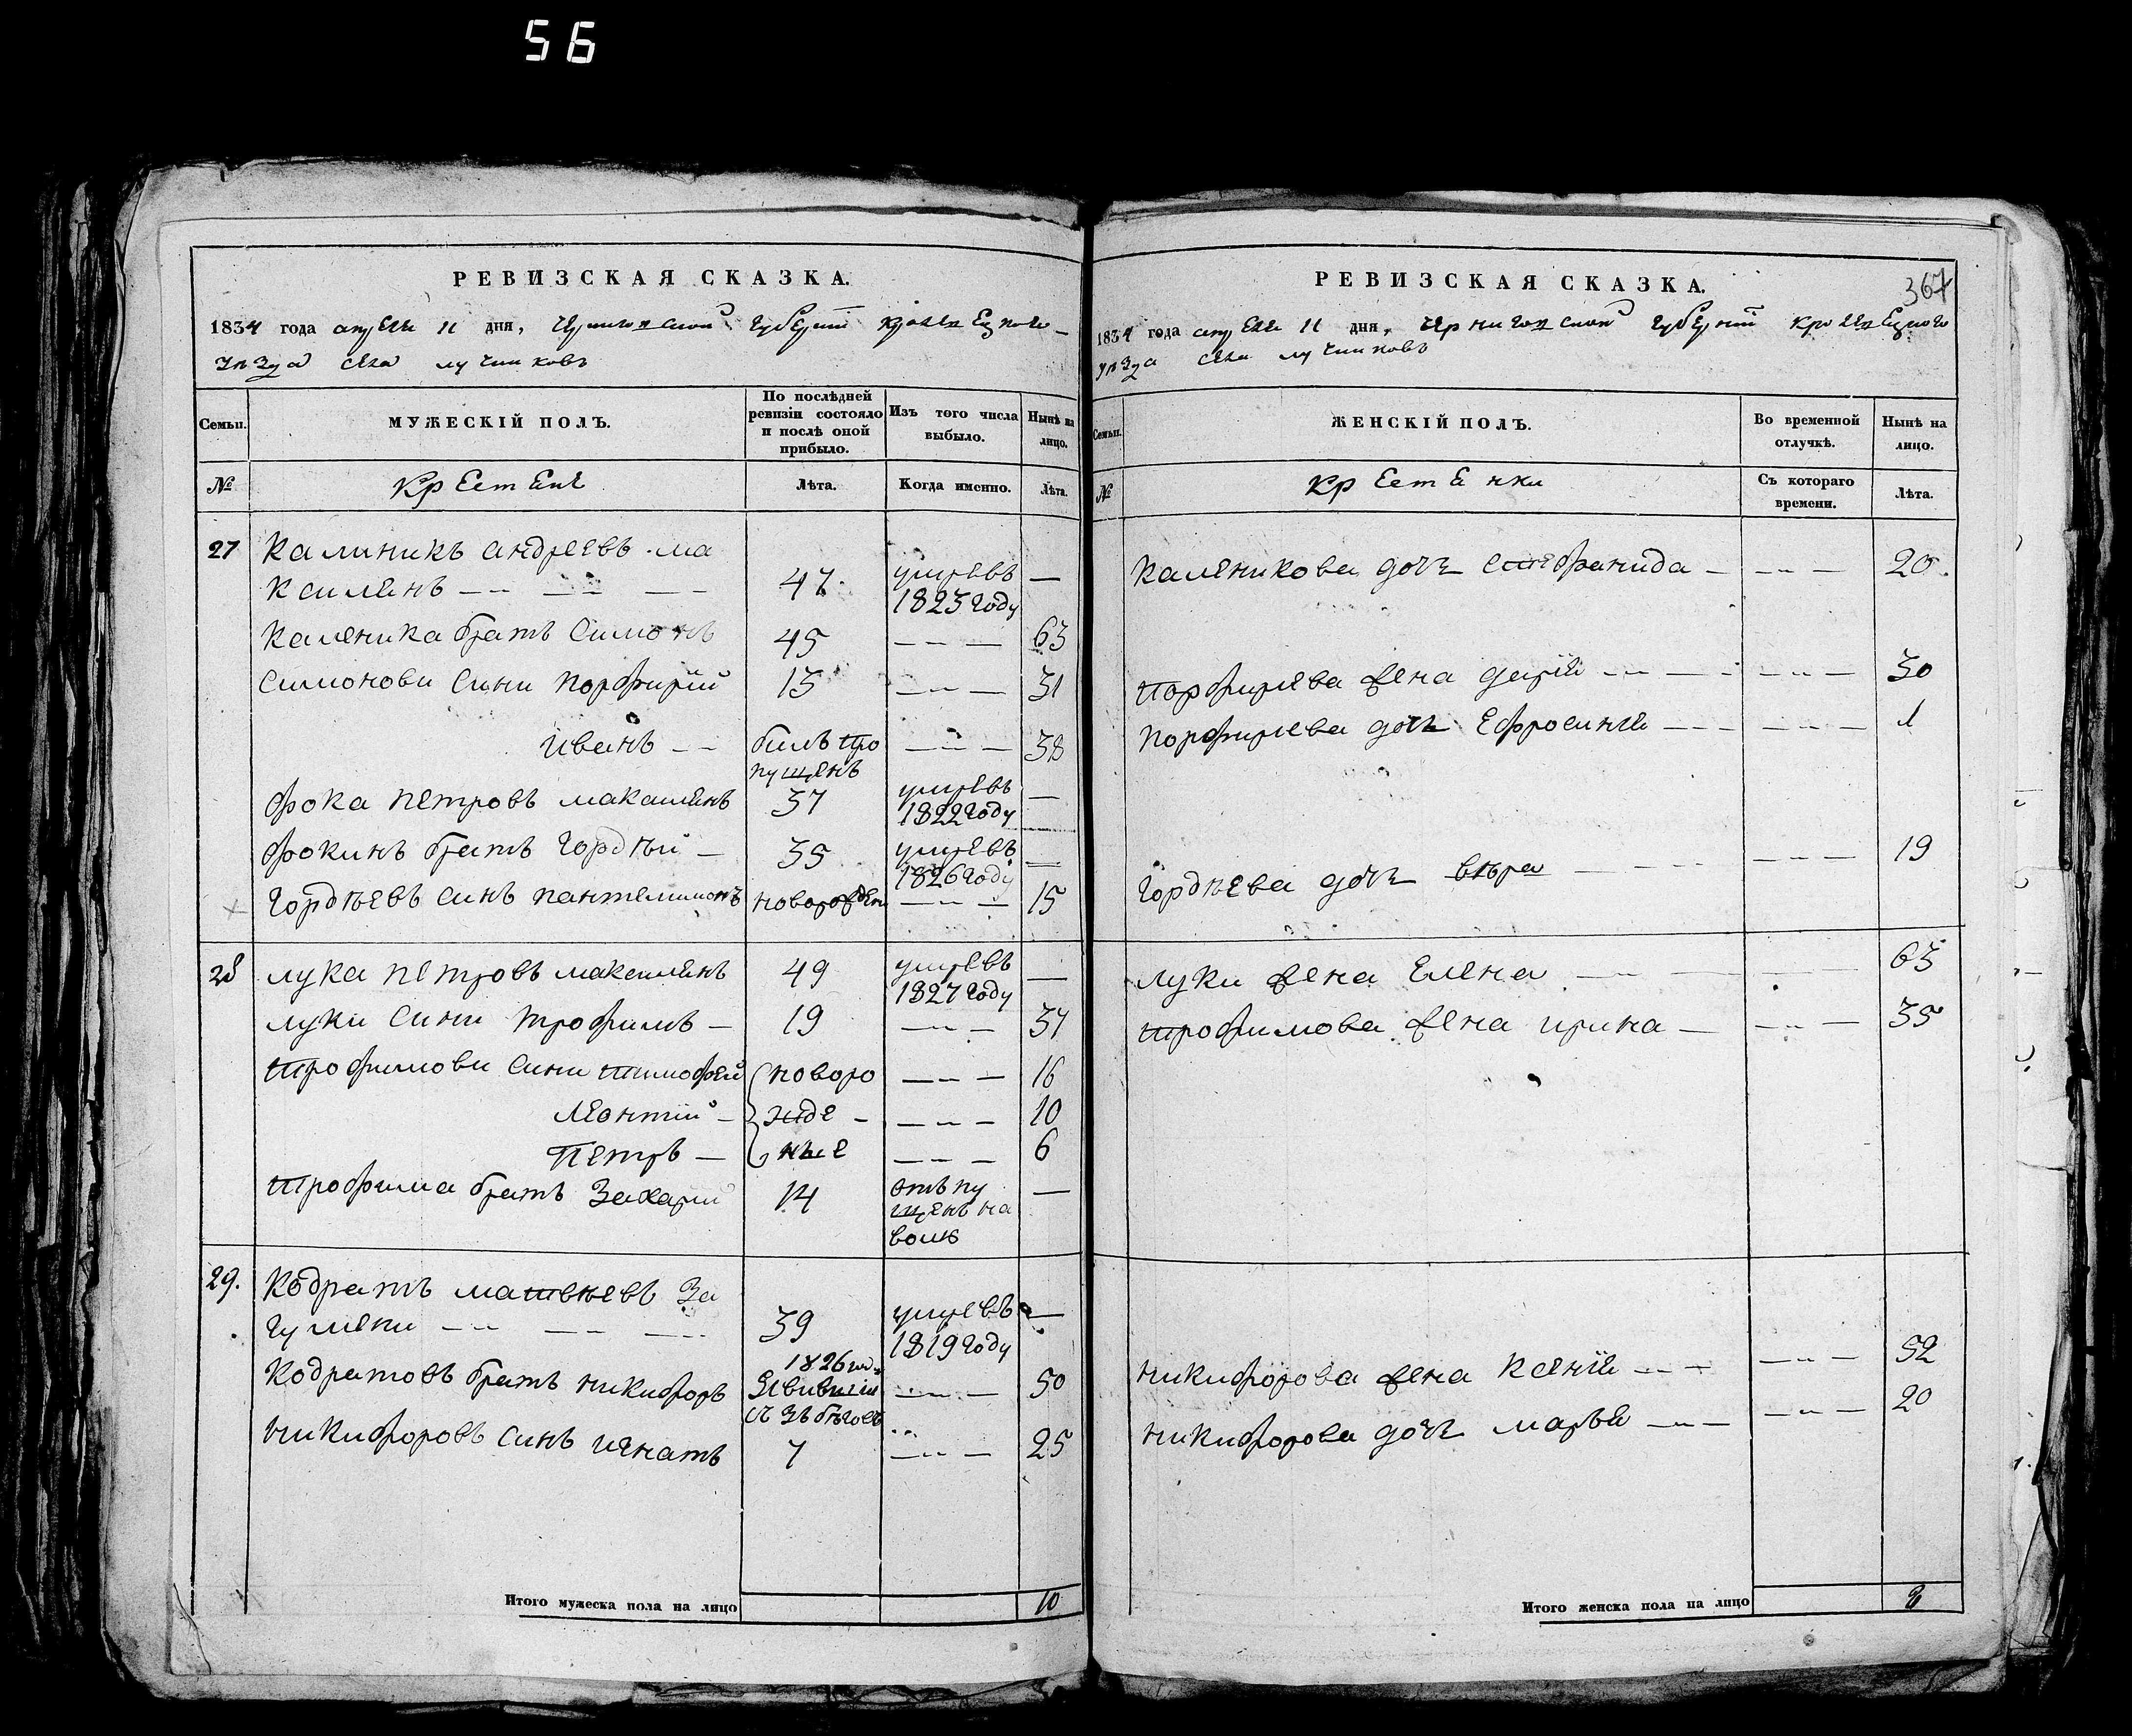 56
РЕВИЗСКАЯ СКАЗКА.
1834 года апреля 11 дня, Черниговской губернии кролевецкого
уѣзда села лучниковъ
Семьи.
МУЖЕСКІЙ ПОЛЪ.
По послѣдней
ревизіи состояло
и послѣ оной
прибыло.
Изъ того числа
выбыло.
Нынѣ на
лицо.
№
Крестяне
Лѣта.
Когда именно.
Лѣта.
27 Калиникъ андреевъ ма
ксименъ 47 умревъ —
1823 году
Каленика братъ Симонъ 45 63
Симонови Сини Порфирій 13 31
Иванъ билъ про 38
пущенъ
Фока Петровъ максименъ 37 умревъ —
1822 году
Фокинъ братъ Гордѣй 35 умревъ —
1826 году
Гордѣевъ Синъ пантелимонъ новорожден 15
28 лука Петровъ максименъ 49 умревъ —
1827 году
луки Сини трофимъ 19 37
Трофимови Сини Тимофей новоро 16
Леонтій жде 10
Петръ ные 6
Трофима братъ Захарій 14 отъпу —
щенъ на
волю
29. Кодратъ матвѣевъ За
39 умревъ —
1819 году
1826
Кодратовъ братъ никифоръ 50
Никифоровъ Синъ игнатъ 7 25
Итого мужеска пола на лицо 10
РЕВИЗСКАЯ СКАЗКА.
367
1834 года апреля 11 дня, Черниговской губерніи кролевецкого
уѣзда села лучниковъ
Семьи.
ЖЕНСКІЙ ПОЛЪ.
Во временной
отлучкѣ.
Нынѣ на
лицо.
№
Крестенки
Съ котораго
времени.
Лѣта.
Каленикова дочь Стефанида 20.
Порфирева жена дарія 30
Порфирева дочь Ефросинія 1
Гордѣева дочь вѣра 19
луки жена Елена 63
Трофимова жена ирина 35
Никифорова жена Ксенія 52
Никифорова дочь марья 20
Итого женска пола на лицо 8